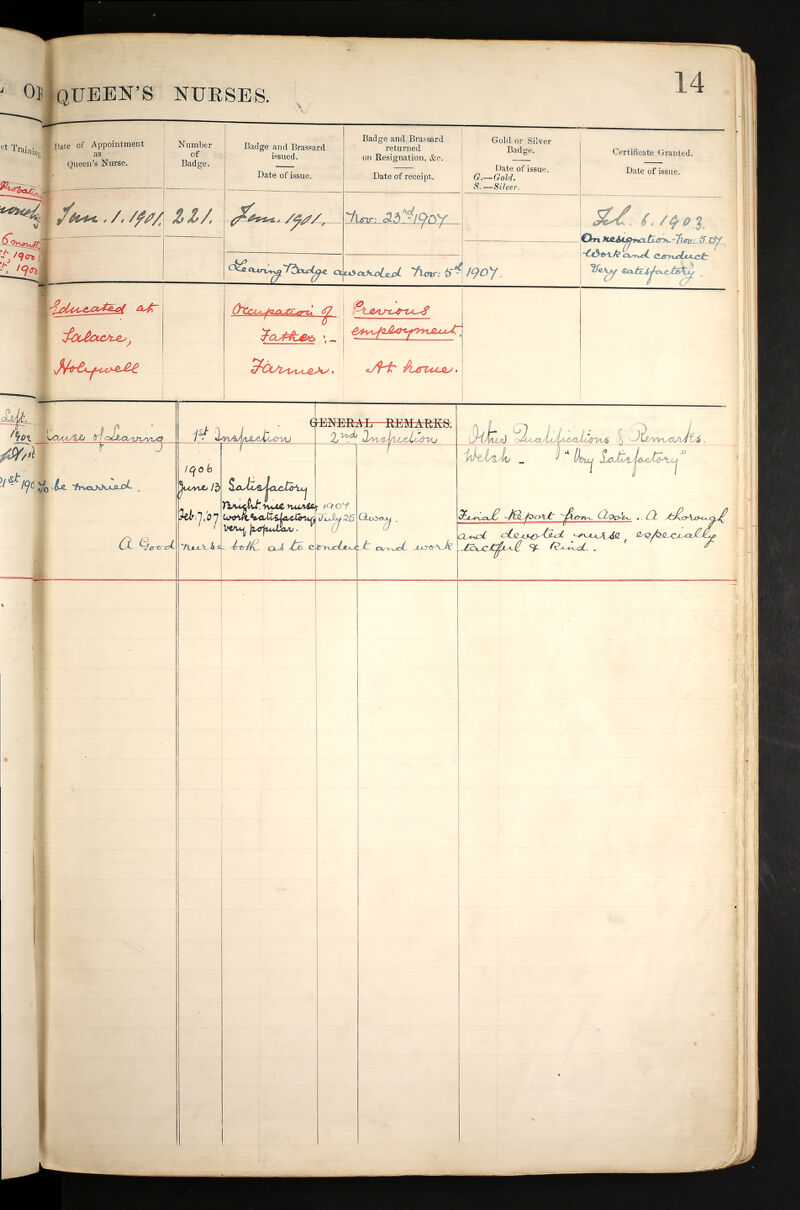 14
QUEEN'S NURSES.
Date of Appointment
as
Queen's Nurse.
Number
of
Badge.
Badge and Brassard
issued.
Date of issue.
Badge and Brassard
returned
on Resignation, &c.
Date of receipt.
Gold or Silver
Badge.
Date of issue.
G.—Gold.
S.—Silver.
Certificate Granted.
Date of issue.
Jan. 1. 1901.
221.
Jan. 1901.
Nov: 23rd 1907
Feb. 6. 1903.
On resignation - Nov: 5. 07.
- Work and conduct
Very satisfactory.
Leaving Badge awarded Nov: 5th 1907.
Educated at
Halacre,
Holywell
Occupation of
Father :-
Farmer.
Previous
employment
At home.
GENERAL REMARKS.
Left.
Cause of Leaving
1st Inspection
2nd Inspection
Other Qualifications & Remarks.
To be married.
1906
June 13
Satisfactory
Feb. 7. 07
Bright nice nurse,
work satisfactory
very popular.
1907
July 25
Away.
Welsh - "Very Satisfactory"
Final Report from Asso'n. A thorough
and devoted nurse, especially
tactful & kind.
A Good nurse both as to conduct and work